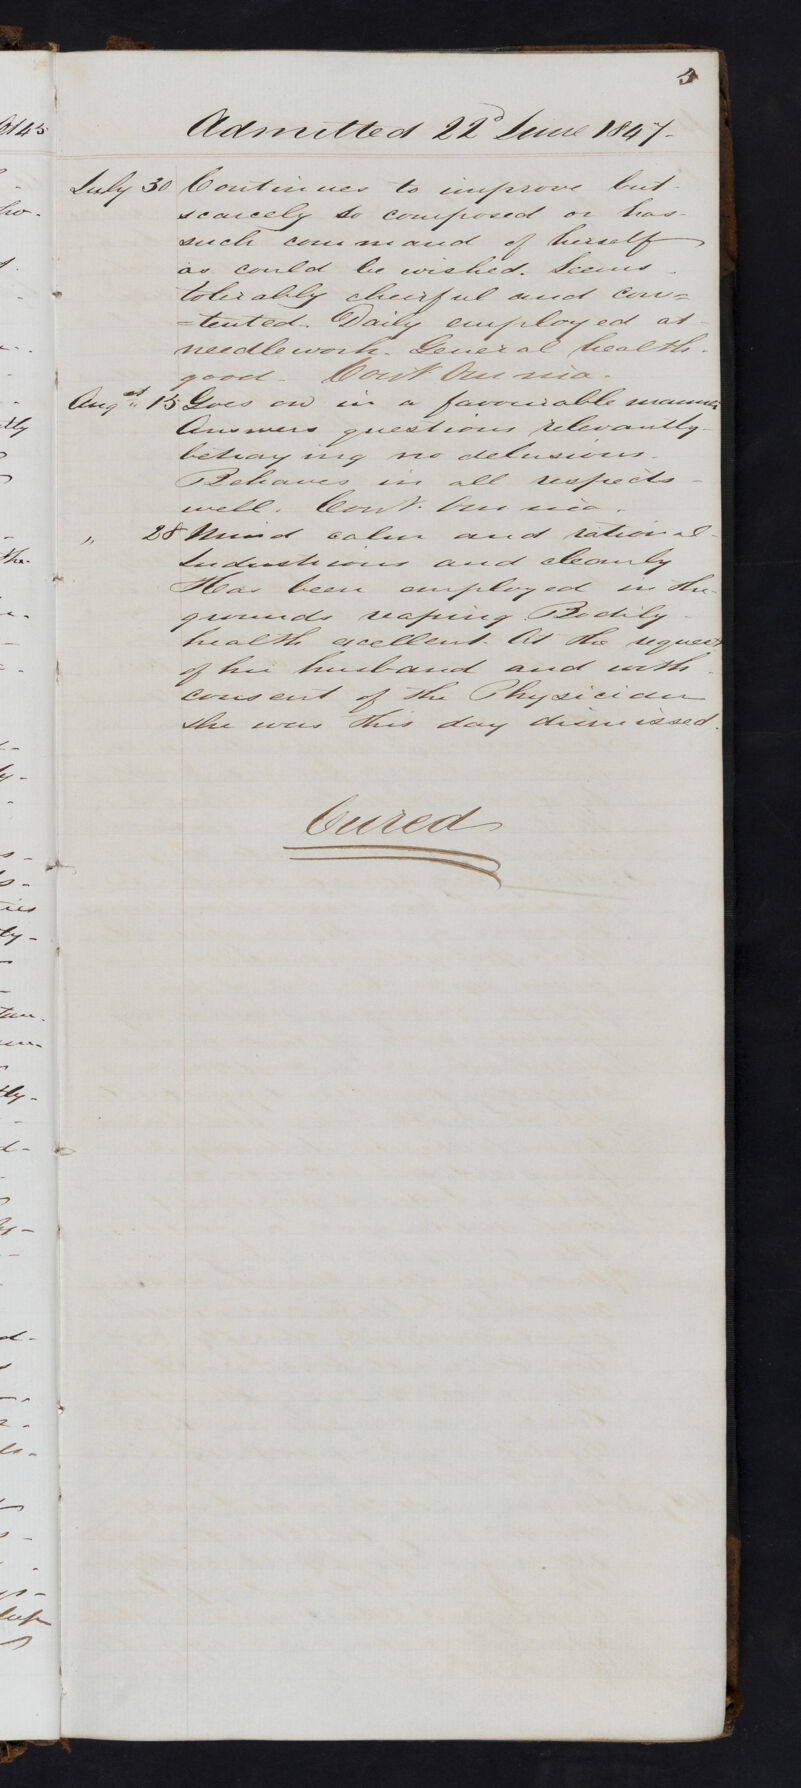 5
Admitted 22d June 1847.
July 30 Continues to improve but
scarcely so composed or has
such command of herself
as could be wished. Seems
tolerably cheerful and con=
=tented. Daily employed at
needlework. General health
good. Cont. Omnia.
Augst 15 Goes on in a favourable manner
Answers questions relevantly
betraying no delusions.
Behaves in all respects
well. Cont. Omnia.
" 28 Mind calm and rational
Industrious and cleanly
Has been employed in the
grounds reaping. Bodily
health excellent. At the request
of her husband and with
consent of the Physician
she was this day dismissed.
Cured